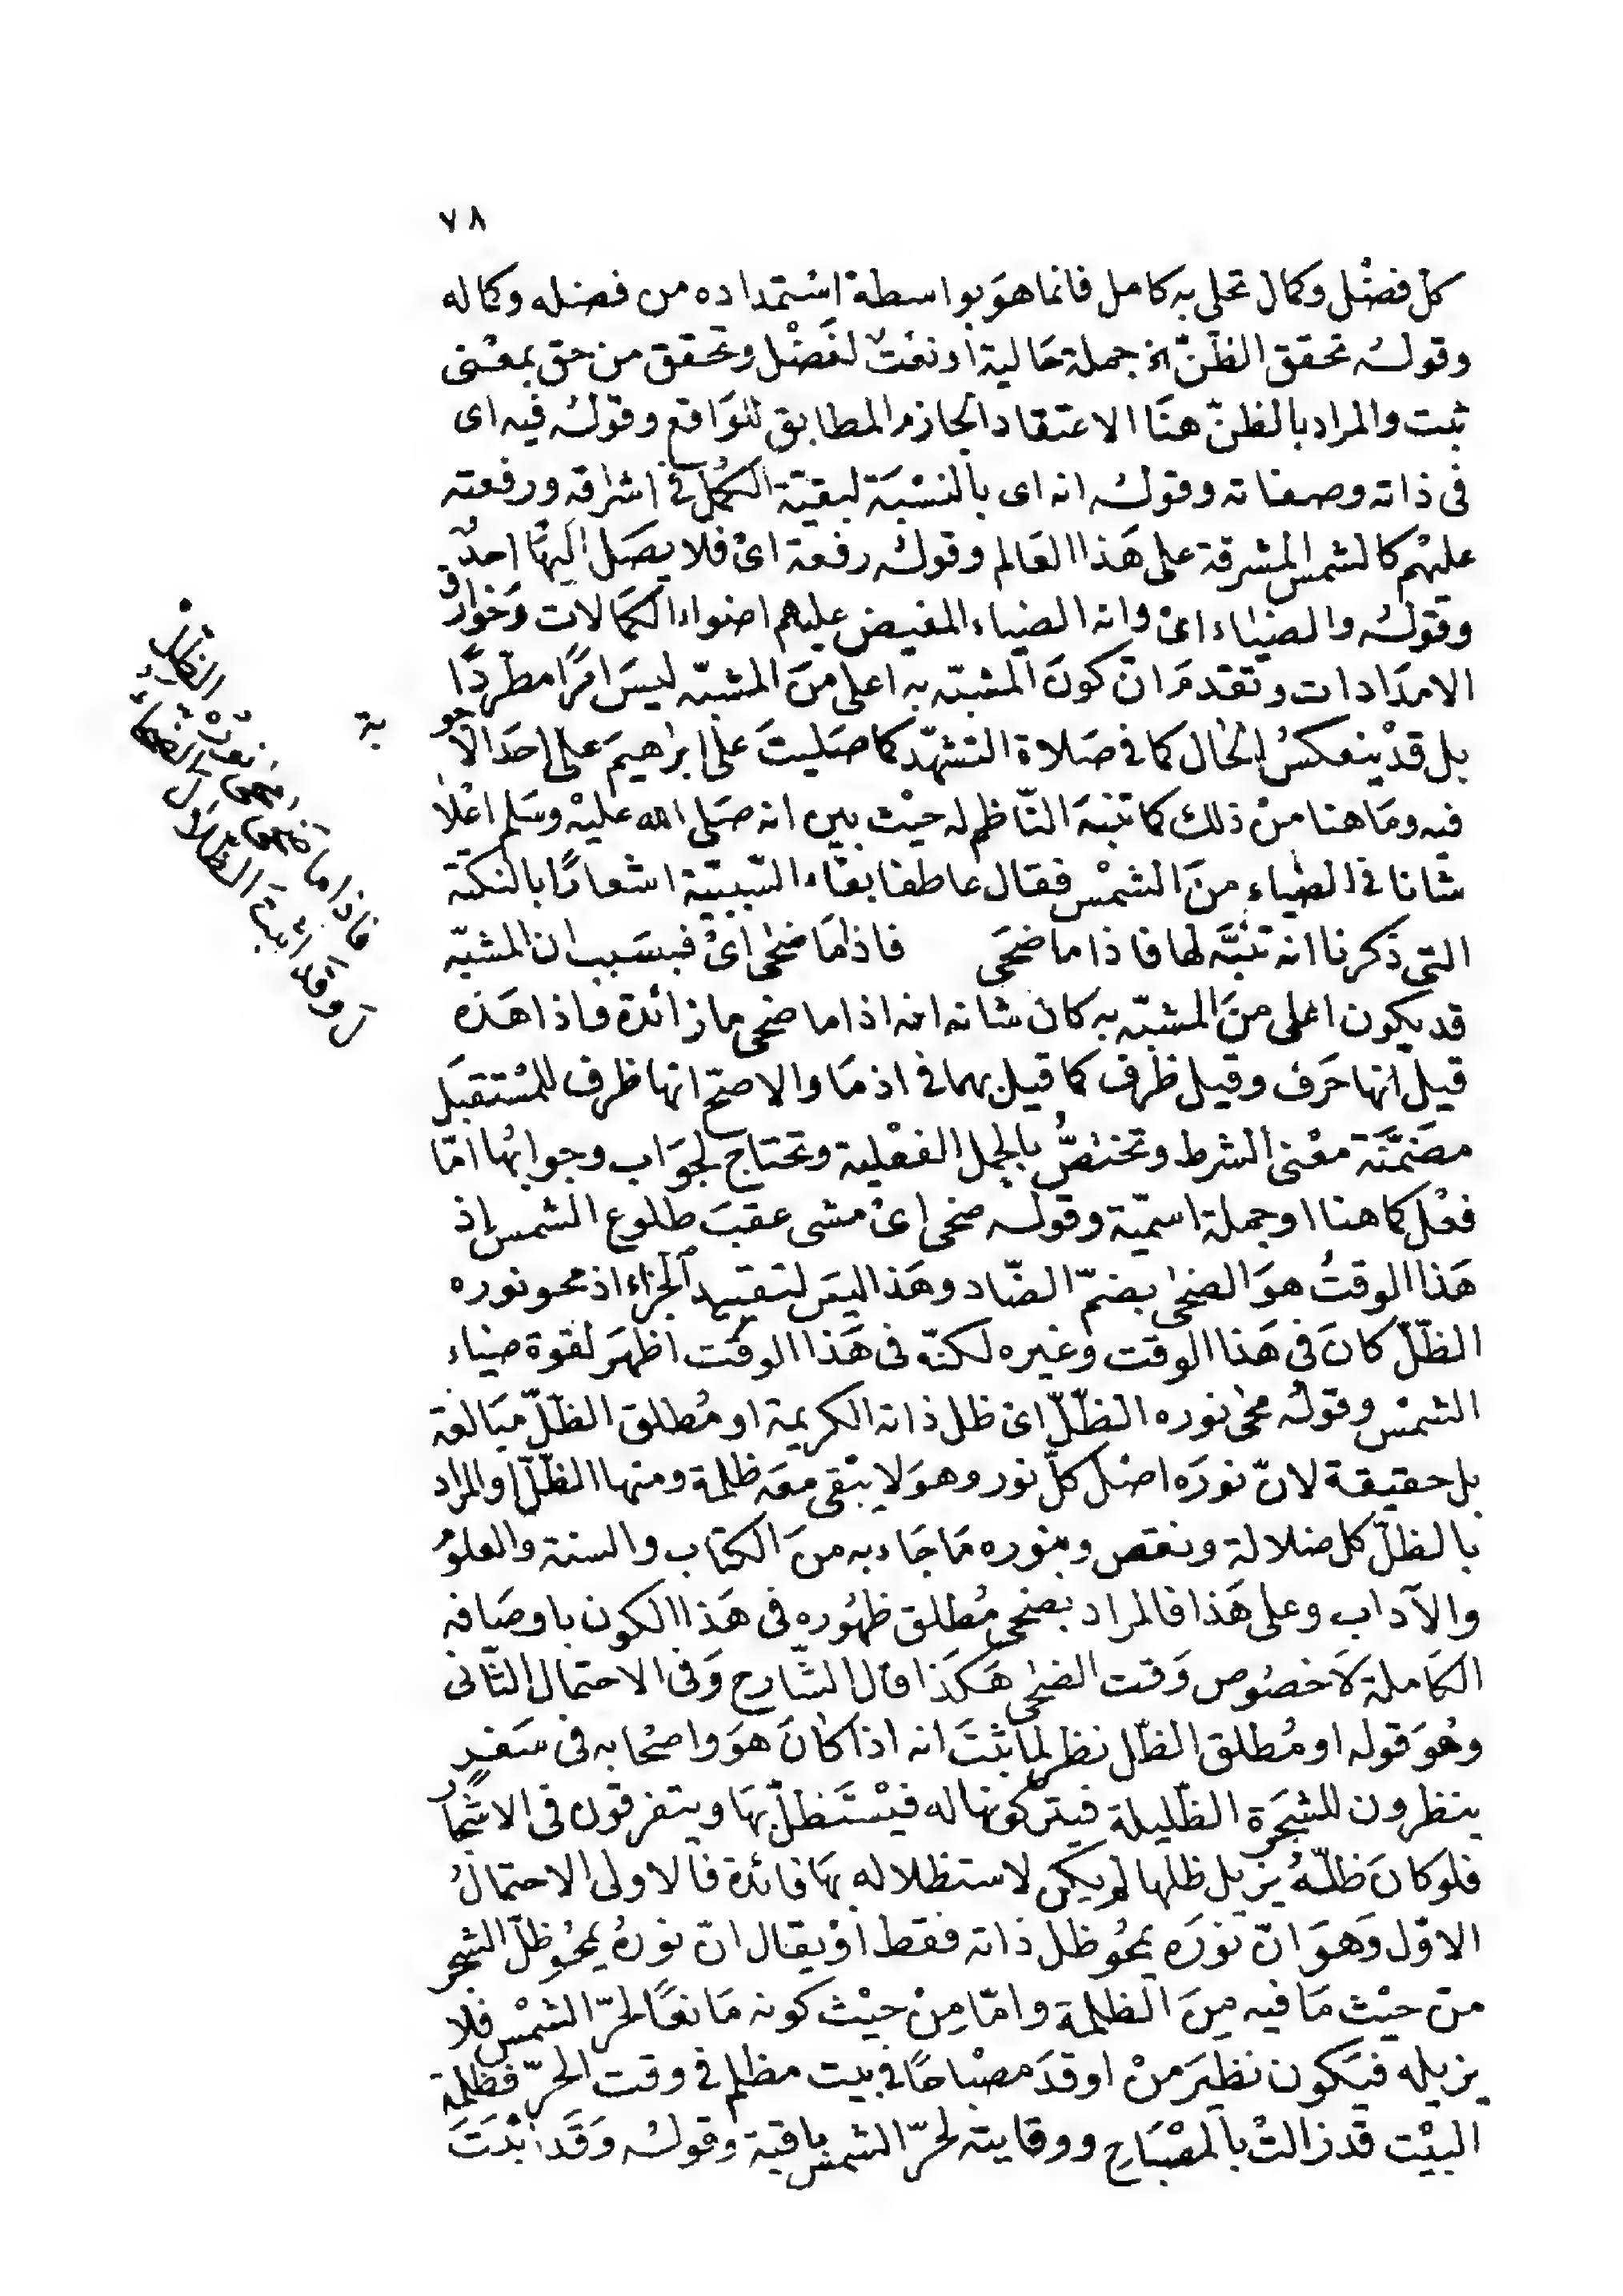 ٧٨
كل فضْل وكمال تحلى به كامل فانما هوَ بواسطة استمداده من فضله وكماله
وقولهُ تحقق الظنّ الخ جملة حَالية او نعْتٌ لفَضْل وتحقق من حق بمعْنى
ثبت والمراد بالظنّ هنَا الاعتقاد الجازم المطابق للوَاقع وقولهُ فيه اى
فى ذاته وصفاته وقولهُ انه اى بالنسْبَة لبقيّة الكُمل فى اشراقه ورفعته
عليْهم كالشمس المشرقة على هَذا العَالم وقولهُ رفعة اىْ فلا يصَل اليهَا احدٌ
وقولهُ والضيَاء اىْ وانه الضياء المفيض عليهم اضواء الكمَالات وَخوارق
الامدَادات وتقدمَ انّ كونَ المشبّه به اعلى منَ المشبّه ليسَ امرًا مطّردًا
بل قدْ ينعكسُ الحَال كما فى صَلاة التشهّد كما صَليتَ على ابراهيمَ على احَد الاجوبة
فيه ومَا هنا منْ ذلك كما تنبّهَ النّاظم له حيْث بين انه صَلى الله عليْه وسَلم اعْلا
شانا فى الضياء منَ الشمْس فقال عاطفا بفَاء السّببيّة اشعارًا بالنكتة
التى ذكرنا انه تنبَّه لها فاذا ما ضحَى فاذا مَا ضحٰى اىْ فبسَبب ان المشبّه
قد يكون اعلى منَ المشبّه به كان شانه انه اذا ما ضحى ما زائدة فاذا هَذه
قيل انها حَرف وقيل ظرْف كما قيل بهما فى اذ مَا والاصحّ انها ظرف للمُسْتقبَل
مضَمّنَة معْنى الشرط وتختصُّ بالجمل الفعْلية وتحتاج لجوَاب وجوابُها امّا
فعْل كما هنا او جملة اسميّة وقولهُ ضحى اىْ مشى عقبَ طلوع الشمس اِذ
هَذا الوقتُ هوَ الضحٰى بضمّ الضّاد وهَذا ليسَ لتقييد الجزاء اذ محو نوره
الظّلّ كانَ فى هَذا الوقت وغيره لكنّه فى هَذا الوقت اظهَر لقوة ضياء
الشمْس وقولهُ محىٰ نوره الظّلّ اىْ ظل ذاته الكريمة او مُطلق الظّلّ مبَالغة
بل حقيقة لانّ نورَه اصْل كلّ نور وهوَ لا يبْقى معَه ظلمة ومنها الظّلّ او المراد
بالظلّ كل ضلالة ونقص وبنوره مَا جَاء به منَ الكتاب والسنة والعلوم
والآداب وعلى هَذا فالمراد بضحى مُطلق ظهُوره فى هَذا الكون باوصَافه
الكَاملة لاَ خصُوص وَقت الضحٰى هَكَذا قال الشّارح وَفى الاحتمال الثّانى
وهُوَ قوله او مُطلق الظّل نظر لما ثبتَ انه اذا كانَ هوَ واصحابه فى سَفرٍ
ينظرون للشجَرة الظّليلة فيتركونها له فيسْتَظلّ بهَا ويتفرقون فى الاشجَار
فلو كانَ ظلّهُ يزيل ظلها لم يكن لاستظلاله بهَا فائدة فالاولى الاحتمالُ
الاوّل وَهوَ انّ نورَه يمحُو ظل ذاته فقط اوْ يقال انّ نورهُ يمحُو ظلّ الشجر
منْ حيْث مَا فيه مِنَ الظلمة وامّا مِنْ حيْث كونه مَانعًا لحرّ الشمْس فلا
يزيله فيَكون نظيرَ منْ اوقدَ مصْباحًا فى بيت مظلم فى وقت الحرّ فظلمة
البيْت قدْ زالتْ بالمصْبَاحِ ووقايته لحرّ الشمس باقية وقولهُ وَقَد اَبْدَتَ
فاذا ما ضحى محى نورهُ الظلّ